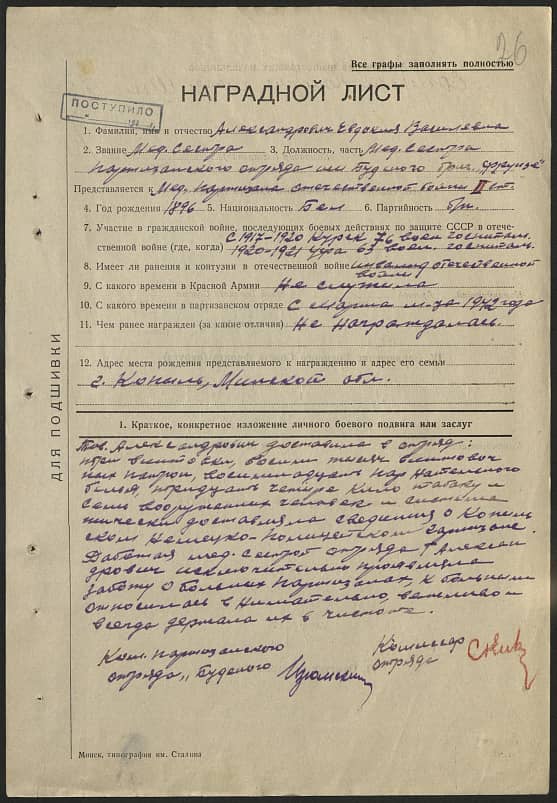 26
Все графы заполнять полностью
НАГРАДНОЙ ЛИСТ
ПОСТУПИЛО
1. Фамилия, имя и отчество Александрович Евдокия Васильевна
2. Звание Мед. Сестра 3. Должность, часть Мед. Сестра
партизанского отряда им. Будёного бриг. Фрунзе
Представляется к Мед. партизана отечественной войны II ст.
4. Год рождения 1896 5. Национальность Бел 6. Партийность б/п.
7. Участие в гражданской войне, последующих боевых действиях по защите СССР в отече-
ственной войне (где, когда) С 1917-1920 Курск 76 воен госпиталь
1920-1921 Уфа 63 воен. госпиталь.
8. Имеет ли ранения и контузии в отечественной войне инвалид отечественной
войны
9. С какого времени в Красной Армии Не служила
10. С какого времени в партизанском отряде С марта м-ца 1942 года
11. Чем ранее награжден (за какие отличия) Не награждалась.
12. Адрес места рождения представляемого к награждению и адрес его семьи
г. Копыль, Минской обл.
ДЛЯ ПОДШИВКИ
I. Краткое, конкретное изложение личного боевого подвига или заслуг
Тов. Александрович доставила в отряд:
три винтовки, восемь тысяч винтовоч
ных патрон, восемнадцать пар нательного
белья, тридцать четыре кило табаку и
семь вооруженных человек и система
тически доставляла сведения о Копыль
ском Немецко-полицейском гарнизоне.
Работая мед. сестрой отряда т. Алексан
дрович исключительно проявляла
заботу о больных партизанах, к больным
относилась внимательно, вежливо и
всегда держала их в чистоте.
Ком. партизанского
отряда „Будёного
Комиссар
отряда
Минск, типография им. Сталина